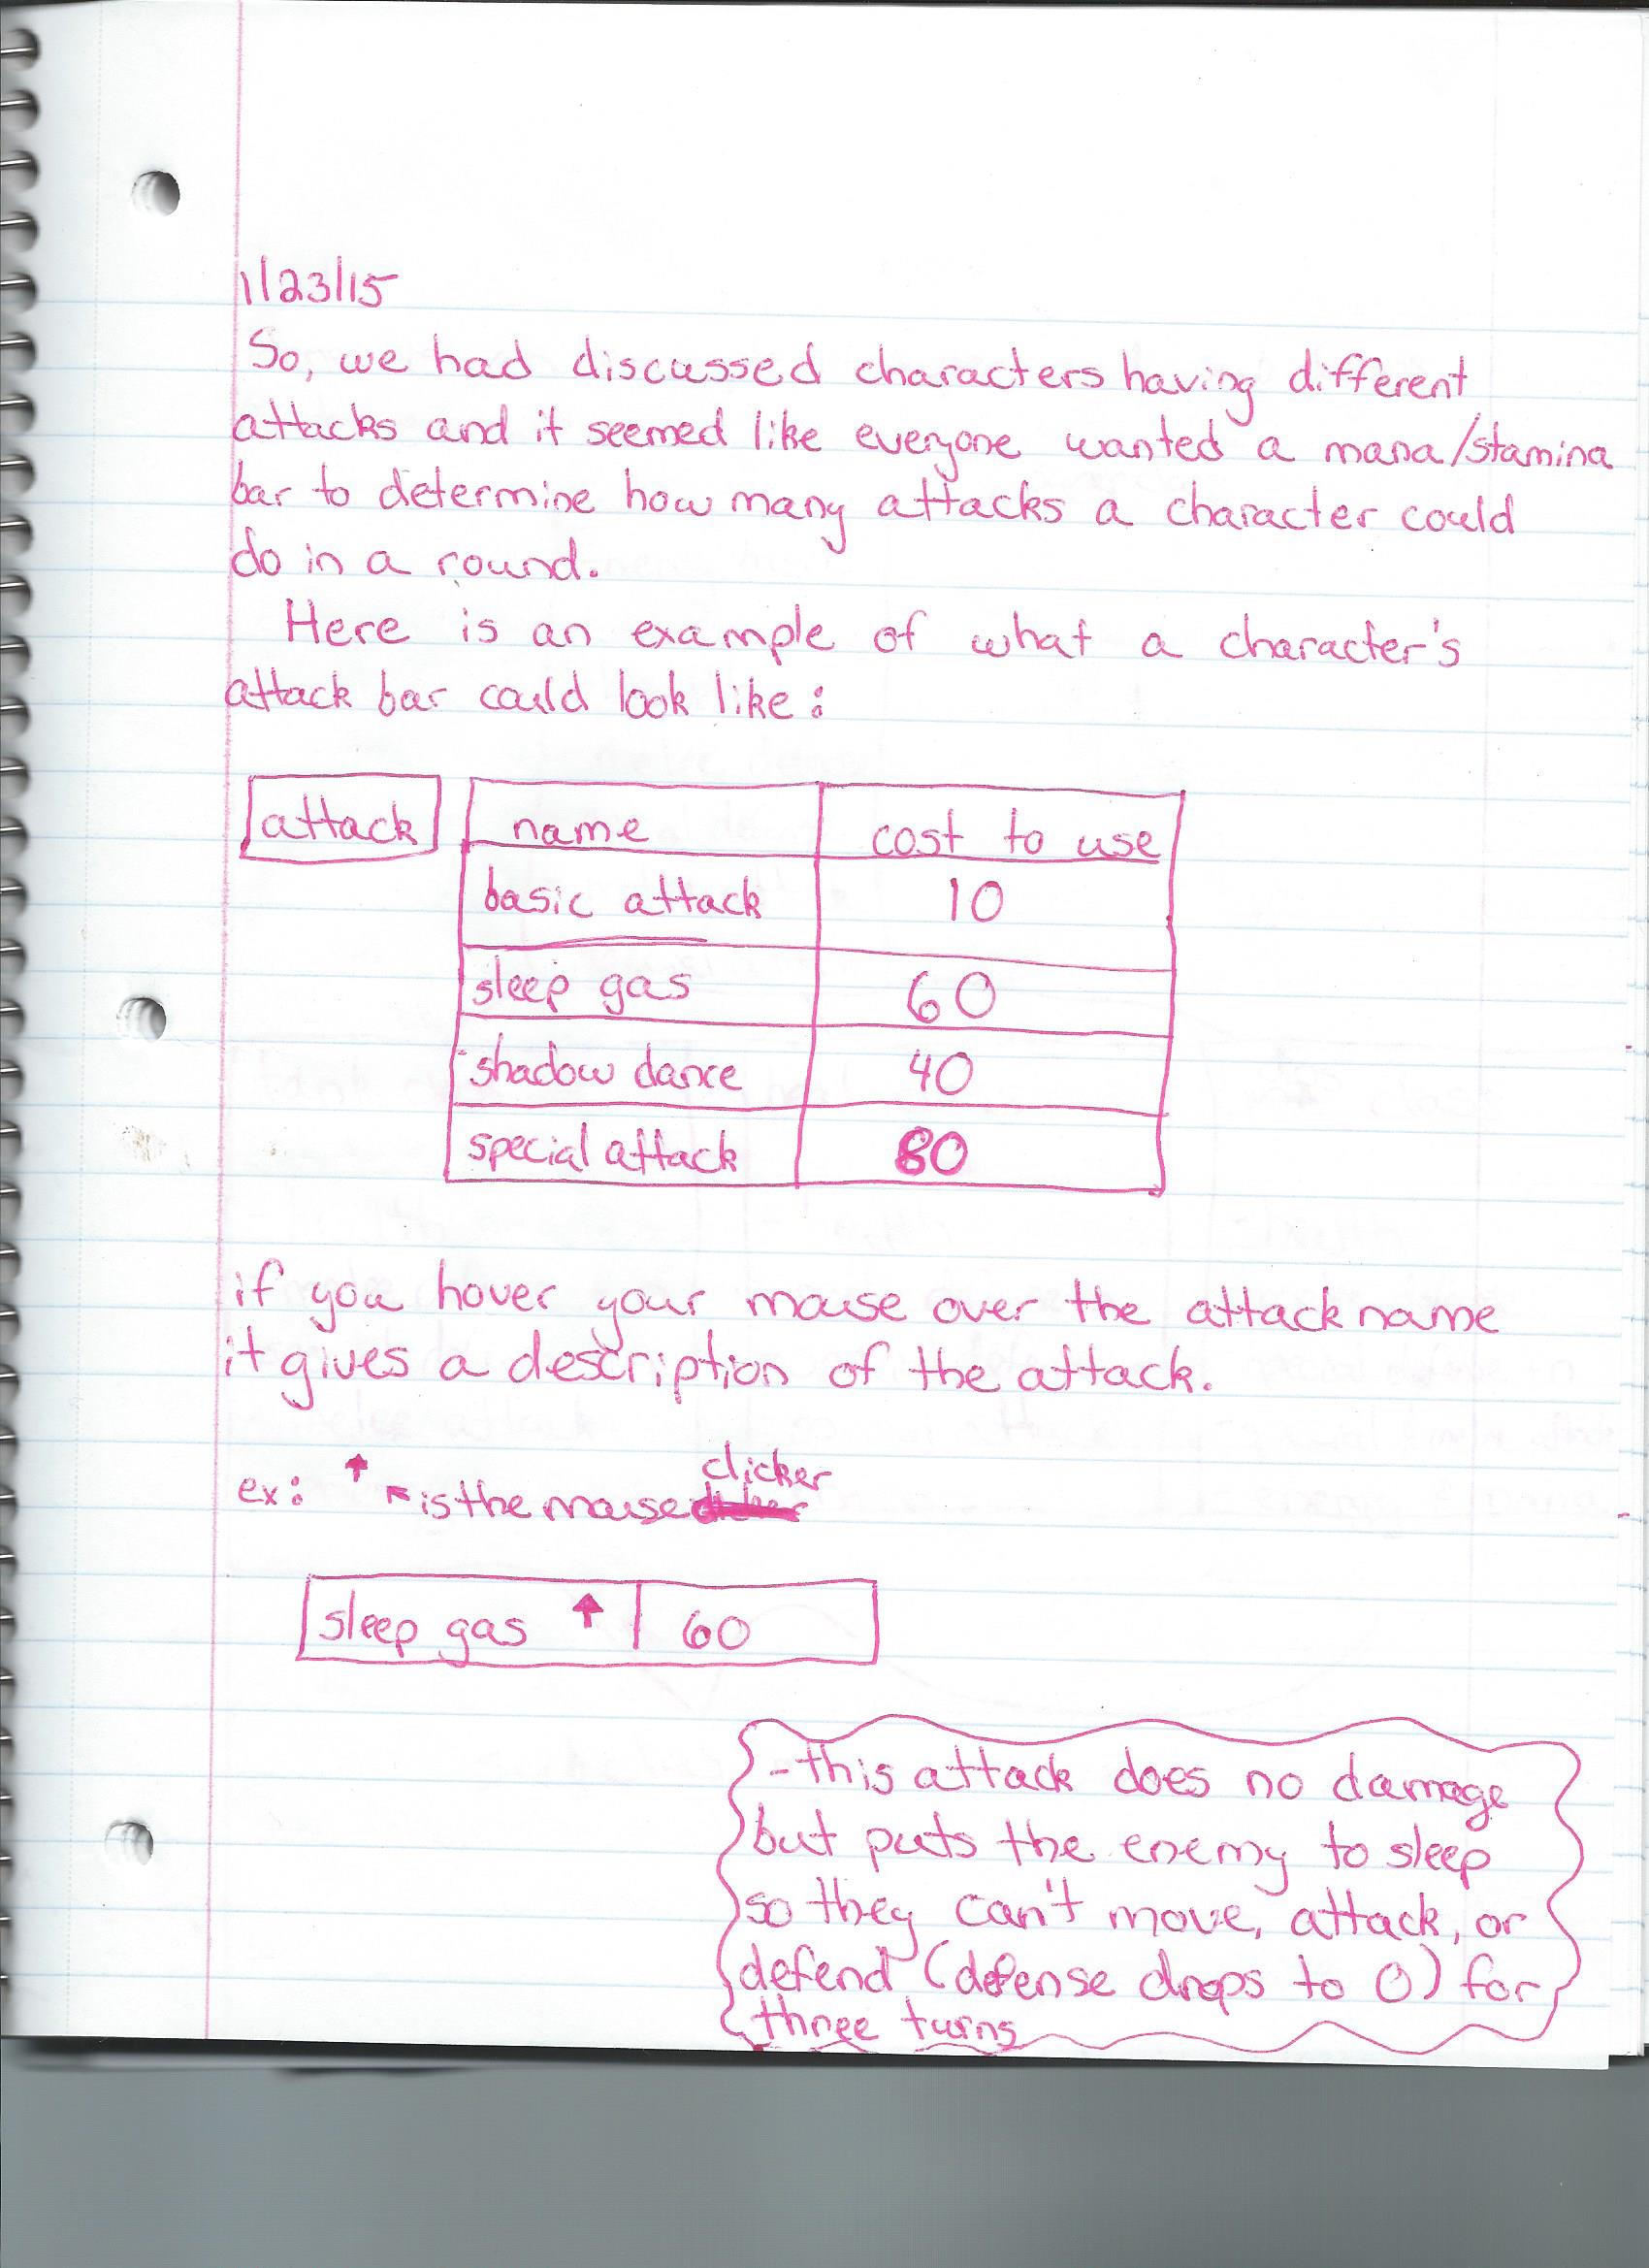 1/23/15
So, we had discussed characters having different
attacks and it seemed like everyone wanted a mana/stamina
bar to determine how many attacks a character could
do in a round.
Here is an example of what a character's
attack bar could look like:
attack name cost to use
basic attack 10
sleep gas 60
shadow dance 40
special attack 80
if you hover your mouse over the attack name
it gives a description of the attack.
clicker
ex: ↑ ↖ is the mouse
sleep gas ↑ 60
-this attack does no damage
but puts the enemy to sleep
so they can't move, attack, or
defend (defense drops to 0) for
three turns